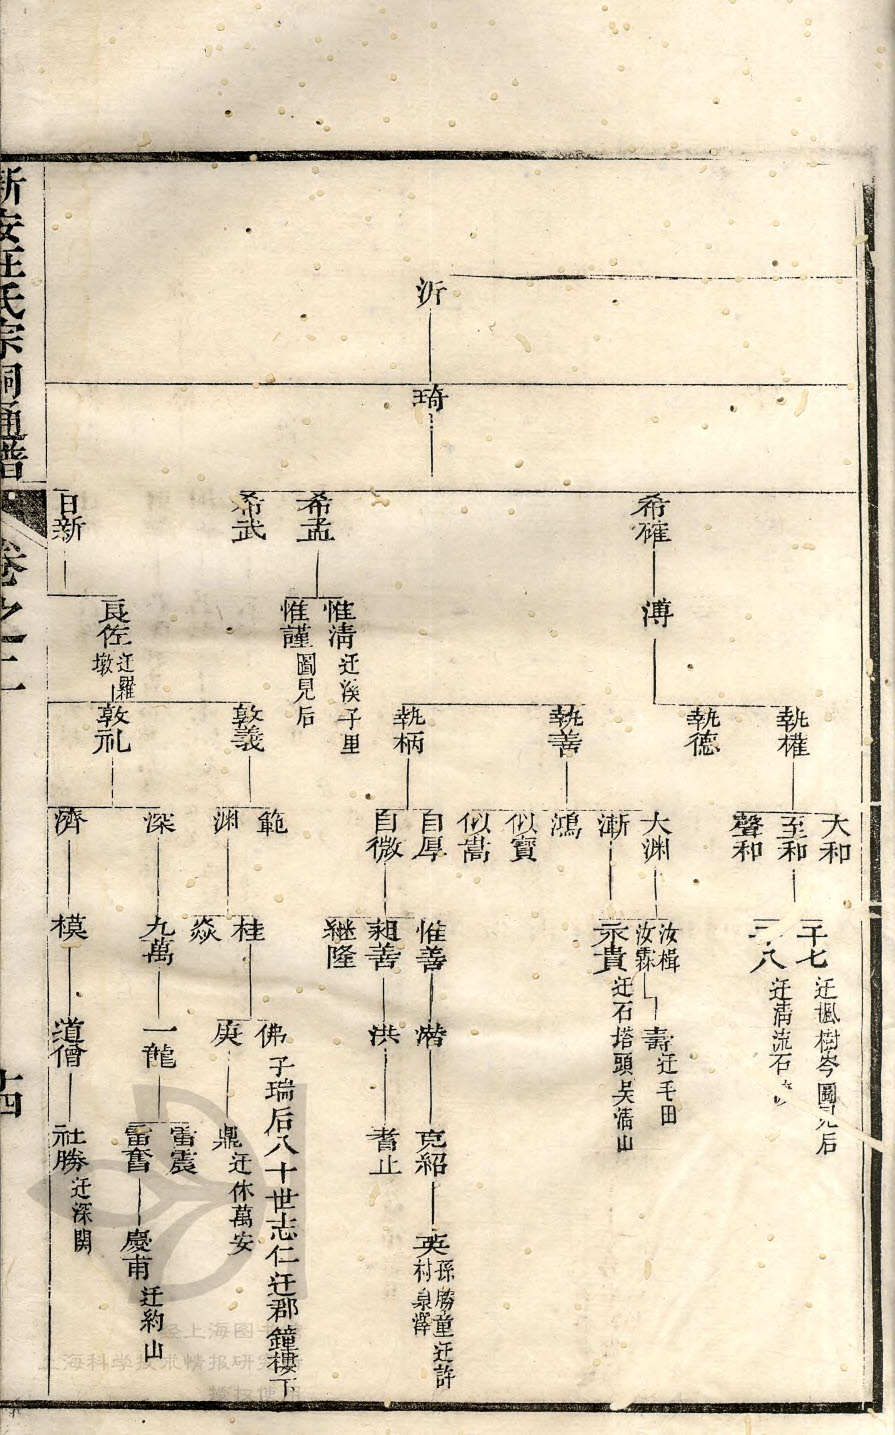 沂
琦
希確
希孟
希武
日新
溥
惟清 迁溪子里
惟謹 圖見后
良佐 迁羅墩
執權
執德
執善
執柄
敦義
敦礼
大和
至和
聲和
大渊
漸
鴻
似寳
似嵩
自厚
自微
範
渊
深
濟
千七 迁楓樹岑圖見后
千八 迁清流石
汝楫
汝霖
永貴 迁石塔頭吴清山
惟善
昶善
継隆
桂
焱
九萬
模
壽 迁毛田
潜
洪
佛 子瑞后八十世志仁迁郡鐘樓下
庚
一龍
道僧
克紹
耆止
鼎 迁休萬安
雷震
雷奮
社勝 迁深関
英 孫勝童迁許村泉澤
慶甫 迁約山
新安汪氏宗祠通譜
卷之二
十四
经上海图书馆
上海科学技术情报研究所
授权使用